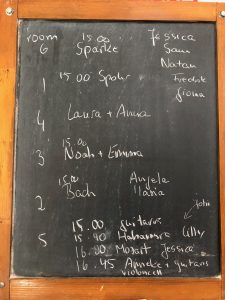 room 15.00 Jessica
6 Sparke Sam
Natan
1 15.00 Spohr Fredrik
Fiona
4 Laura + Anna
15.00
3 Noah + Emma
15.00 Angela
2 Bach Ilaria
15.00 guitars John
5 15.40 Cilly
16.00 Mozart Jessica
16.45 + guitars